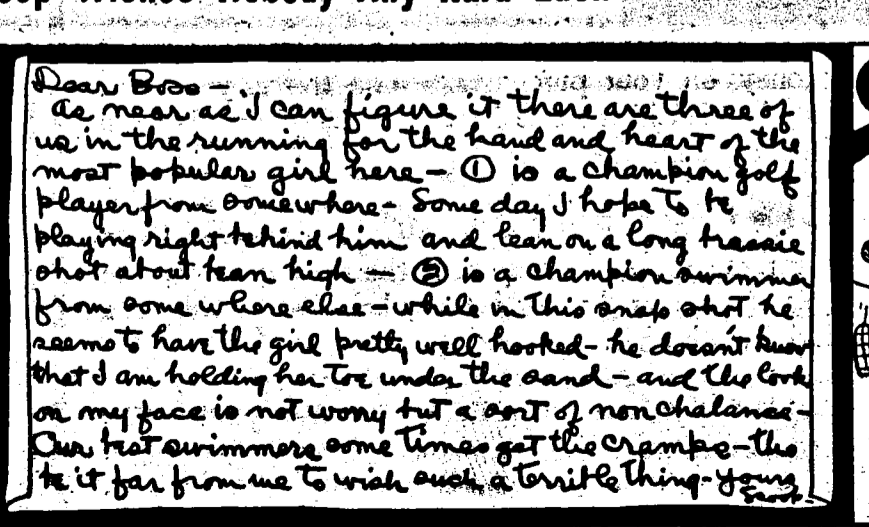 Dear Boss —
As near as I can figure it there are three of
us in the running for the hand and heart of the
most popular girl here — ① is a champion golf
player from somewhere — Some day I hope to be
playing right behind him and lean on a long brassie
shot about bean high — ② is a champion swimmer
from some where else — while in this snap shot he
seems to have the girl pretty well hooked — he doesn't know
that I am holding her toe under the sand — and the look
on my face is not worry but a sort of nonchalance —
Our best swimmers some times get the cramps — tho
be it far from me to wish such a terrible thing — yours
Scoop —